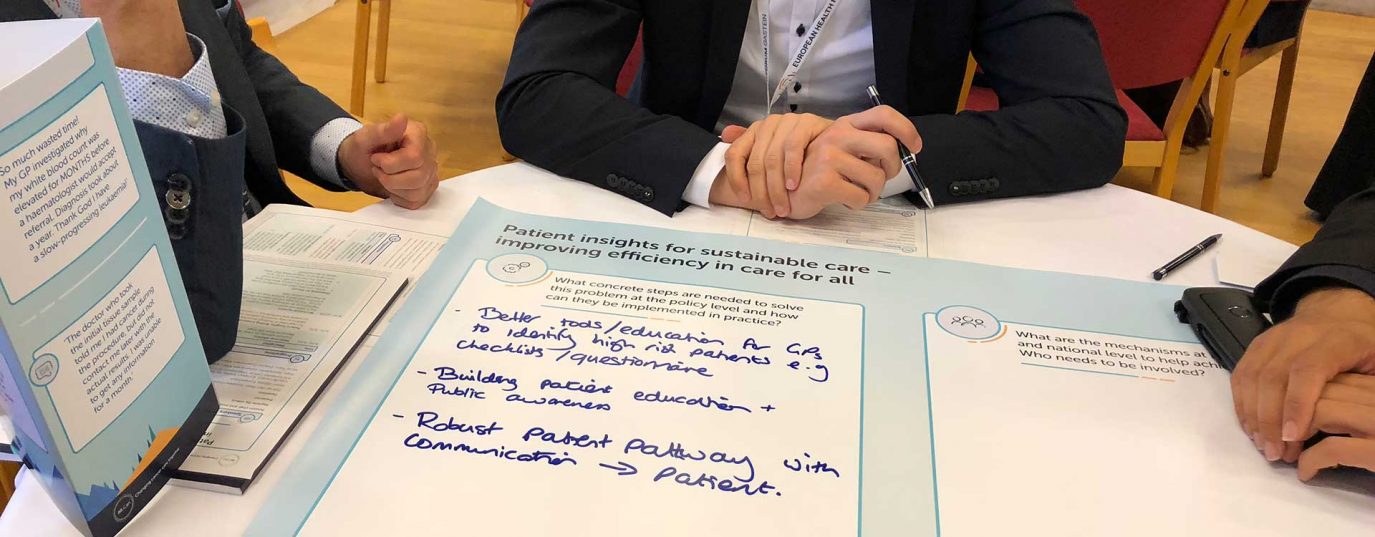 So much wasted time!
My GP investigated why
my white blood count was
elevated for MONTHS before
a haematologist would accept
referral. Diagnosis took about
a year. Thank God I have
a slow-progressing leukaemia!
"The doctor who took
the initial tissue sample
told me I had cancer during
the procedure, but did not
contact me later with the
actual results. I was unable
to get any information
for a month.
EUROPEAN HEALTH
GASTEIN
Patient insights for sustainable care –
improving efficiency in care for all
What concrete steps are needed to solve
this problem at the policy level and how
can they be implemented in practice?
- Better tools/education for GPs
to identify high risk patients e.g
checklists/questionnaire
- Building patient education +
Public awareness
- Robust patient pathway with
communication → patient.
What are the mechanisms at
and national level to help
Who needs to be involved?